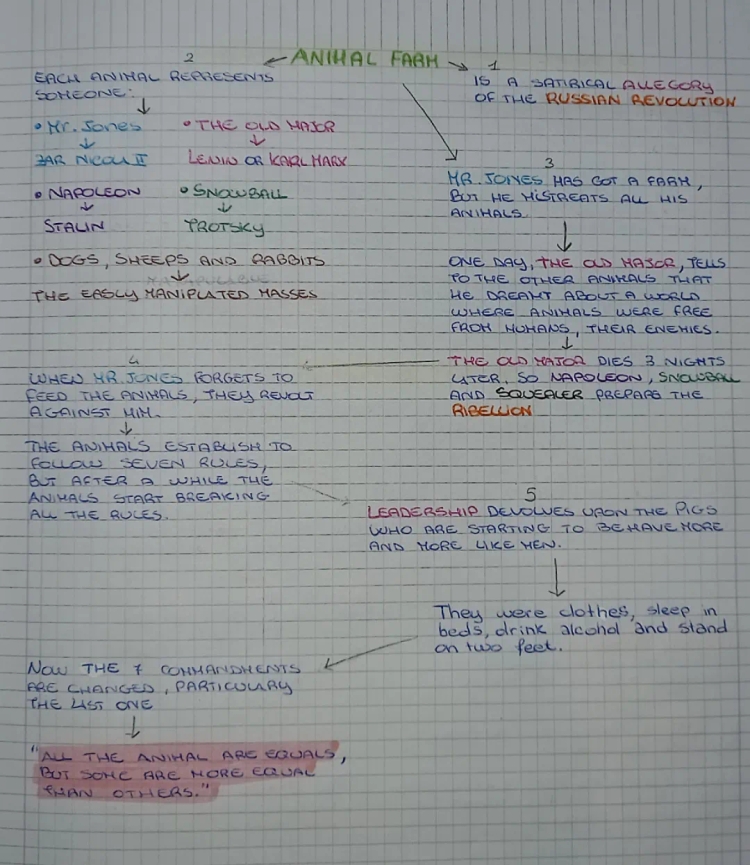 ANIMAL FARM
1
IS A SATIRICAL ALLEGORY
OF THE RUSSIAN REVOLUTION
2
EACH ANIMAL REPRESENTS
SOMEONE:
• Mr. Jones
ZAR NICOLA II
• THE OLD MAJOR
LENIN OR KARL MARX
• NAPOLEON
STALIN
• SNOWBALL
TROTSKY
• DOGS, SHEEPS AND RABBITS
THE EASLY MANIPLATED MASSES
3
MR. JONES HAS GOT A FARM,
BUT HE MISTREATS ALL HIS
ANIMALS.
ONE DAY, THE OLD MAJOR, TELLS
TO THE OTHER ANIMALS THAT
HE DREAMT ABOUT A WORLD
WHERE ANIMALS WERE FREE
FROM HUMANS, THEIR ENEMIES.
THE OLD MAJOR DIES 3 NIGHTS
LATER, SO NAPOLEON, SNOWBALL
AND SQUEALER PREPARE THE
RIBELLION
4
WHEN MR. JONES FORGETS TO
FEED THE ANIMALS, THEY REVOLT
AGAINST HIM.
THE ANIMALS ESTABLISH TO
FOLLOW SEVEN RULES,
BUT AFTER A WHILE THE
ANIMALS START BREAKING
ALL THE RULES.
5
LEADERSHIP DEVOLVES UPON THE PIGS
WHO ARE STARTING TO BEHAVE MORE
AND MORE LIKE MEN.
They were clothes, sleep in
beds, drink alcohol and stand
on two feet.
NOW THE 7 COMMANDMENTS
ARE CHANGED, PARTICULARY
THE LAST ONE
"ALL THE ANIMAL ARE EQUALS,
BUT SOME ARE MORE EQUAL
THAN OTHERS."